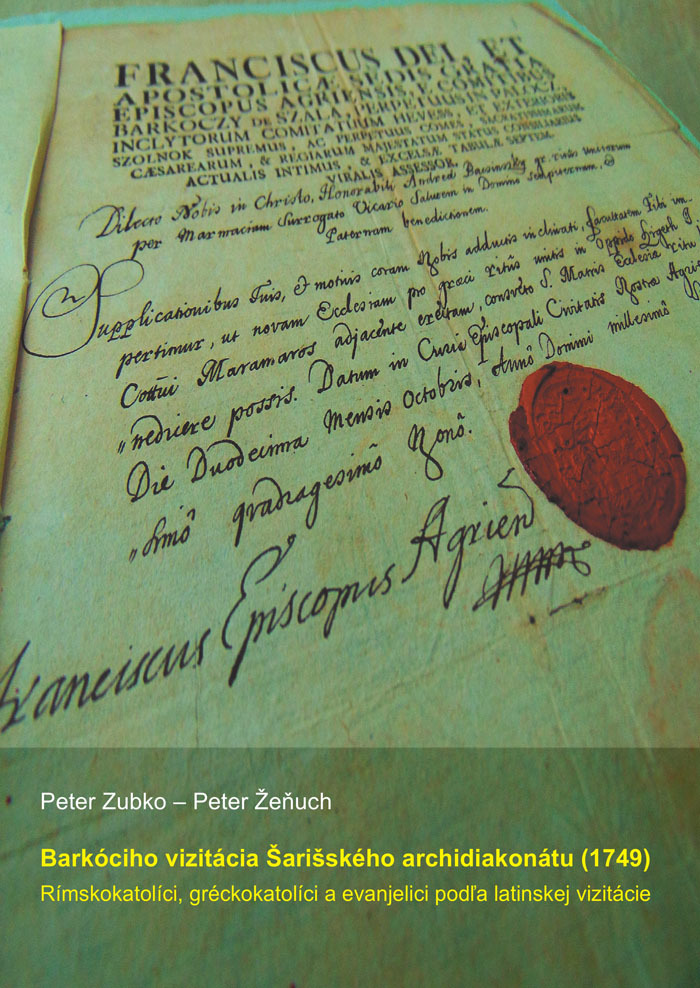 FRANCISCUS DEI, ET
APOSTOLICÆ SEDIS GRATIA
EPISCOPUS AGRIENSIS, E COMITIBUS
BARKOCZY DE SZALA, PERPETUUS IN PALOCZ,
INCLYTORUM COMITATUUM HEVESS, ET EXTERIORIS
SZOLNOK SUPREMUS, AC PERPETUUS COMES, SACRATISSIMARUM
CÆSAREARUM, & REGIARUM MAJESTATUM STATUS CONSILIARIUS
ACTUALIS INTIMUS, & EXCELSÆ TABULÆ SEPTEM-
VIRALIS ASSESSOR,
Dilecto Nobis in Christo, Honorabili Andreæ Bacsinszky gr. ritûs Unitorum
per Marmaciam Surrogato Vicario Salutem in Domino sempiternam, &
Paternam benedictionem.
Supplicationibus Tuis, & motivis coram Nobis adductis inclinati, facultatem Tibi im-
pertimur, ut novam Ecclesiam pro græci ritûs unitis in Oppido
Cottui Maramaros adjacente erectam, consveto S. Matris Ecclesiæ ritu
possis. Datum in Curia Episcopali Civitatis Nostræ
Die Duodecima Mensis Octobris, Annô Domini millesimô
quadragesimô Nonô.
Franciscus Episcopus Agrien
Peter Zubko – Peter Žeňuch
Barkóciho vizitácia Šarišského archidiakonátu (1749)
Rímskokatolíci, gréckokatolíci a evanjelici podľa latinskej vizitácie